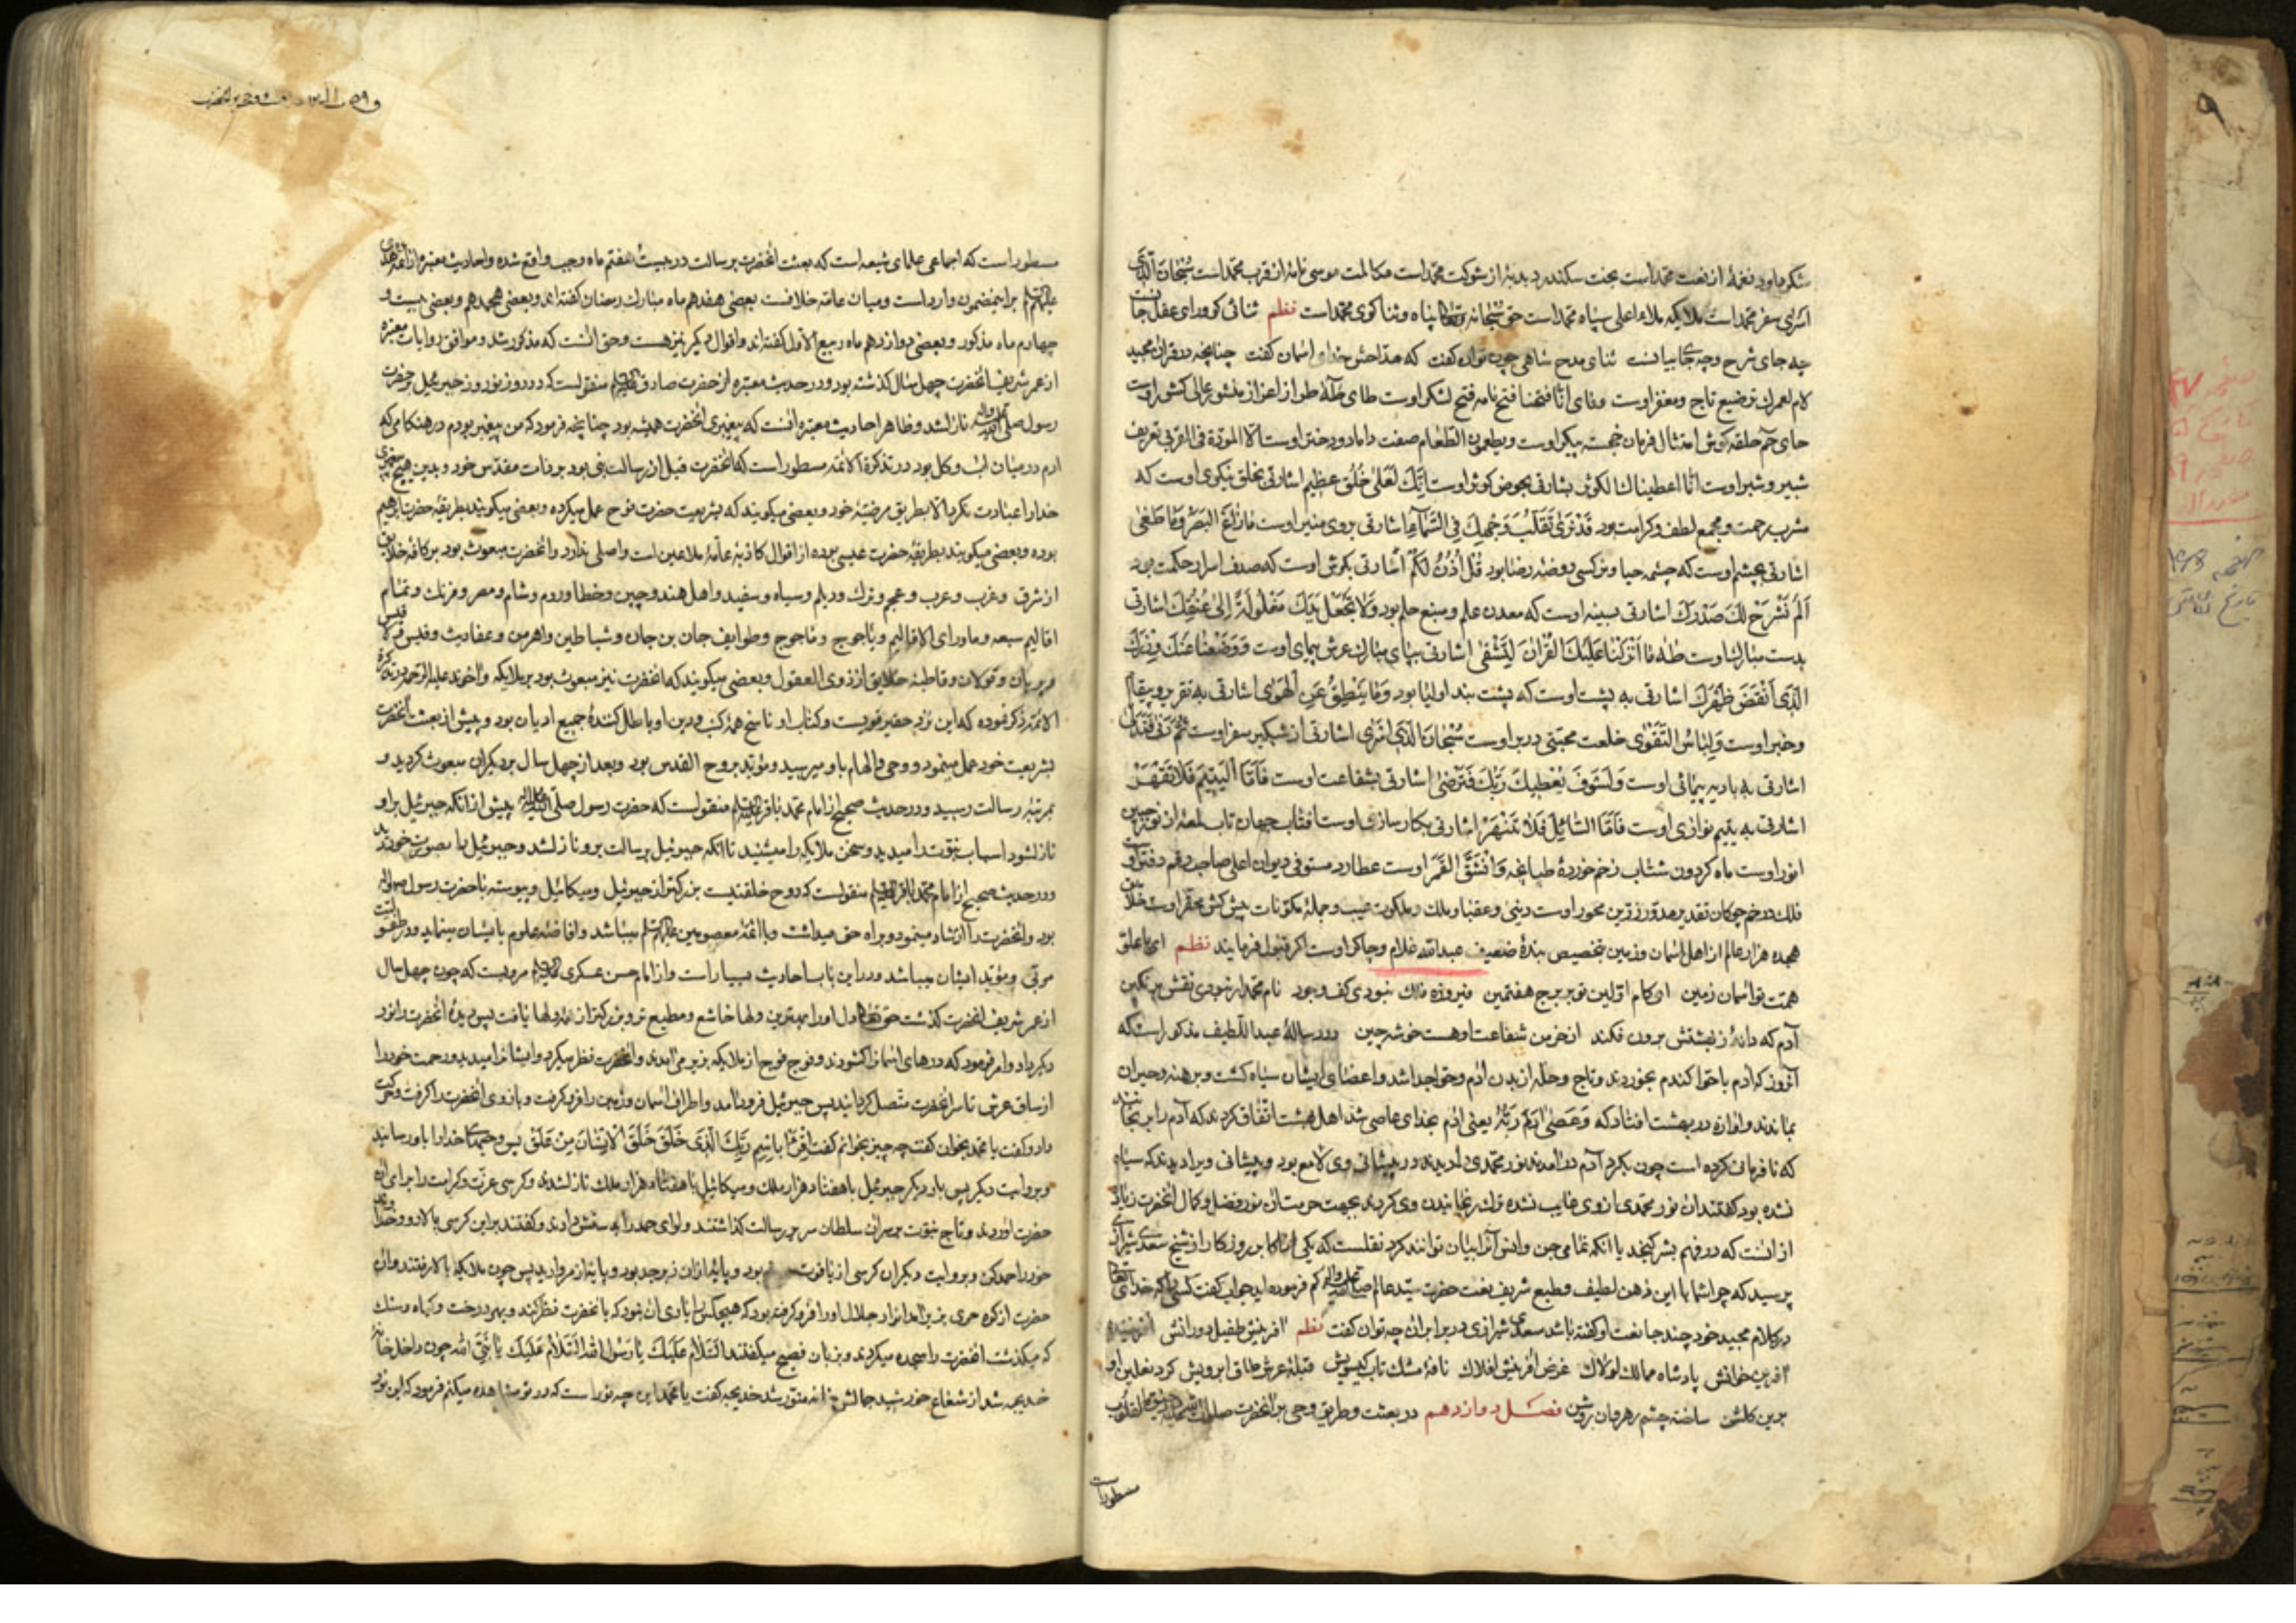 شکرداود نغمهٔ از نعت محمّداست بخت سکندر دبدبهٔ از شوکت محمّداست مکالمت موسی نامهٔ از قرب محمّداست سُبْحٰانَ الَّذی
اسرٰی سفر محمّداست ملایکه ملاء اعلی سپاه محمّداست حق سبحانه وتعالی پناه وثناکوی محمّداست نظم ثنائی کو ورای عقل جانست
چه جای شرح وچه جای بیانست ثنای مدح شاهی چون توان کفت که مدّاحش خدای اسمان کفت چنانچه در قران مجید
لام لعمرك ترصیع تاج ومغفر اوست وفای انّا فتحنا فتح نامه فتح لشکر اوست طای طٰهٰ طراز اعزاز منشور عالی کشور اوست
حای حٰم حلقه کوش امتثال فرمان خجسته پیکر اوست ویطعمون الطّعام صفت داماد ودختر اوست الّا المودّة فی القربی تعریف
شبیر وشبر اوست انّا اعطیناك الکوثر بشارتی بحوض کوثر اوست اِنَّكَ لَعَلٰی خُلُقٍ عَظیم اشارتی بخلق نیکوی اوست که
مشرب رحمت ومجمع لطف وکرامت بود قَدْ نَرٰی تَقَلُّبَ وَجْهِكَ فِی السَّمٰآءِ اشارتی بروی منیر اوست مٰا زٰاغَ الْبَصَرُ وَمٰا طَغٰی
اشارتی بچشم اوست که چشمه حیا ونرکس روضهٔ رضا بود قُلْ اُذُنُ لَکُمْ اشارتی بکوش اوست که صدف اسرار حکمت بود
اَلَمْ نَشْرَحْ لَكَ صَدْرَكَ اشارتی بسینهٔ اوست که معدن علم ومنبع حلم بود وَلٰا تَجْعَلْ یَدَكَ مَغْلُولَةً اِلٰی عُنُقِكَ اشارتی
بدست مبارك اوست طٰهٰ مٰا اَنْزَلْنٰا عَلَیْكَ الْقُرْاٰنَ لِتَشْقٰی اشارتی بپای مبارك عرش پیمای اوست وَوَضَعْنٰا عَنْكَ وِزْرَكَ
الَّذی اَنْقَضَ ظَهْرَكَ اشارتی به پشت اوست که پشت بند اولیا بود وَمٰا یَنْطِقُ عَنِ الْهَوٰی اشارتی به تقریر وپیغام
وخبر اوست وَلِبٰاسُ التَّقْوٰی خلعت محبّتی در بر اوست سُبْحٰانَ الَّذی اَسْرٰی اشارتی از شبکیر سفر اوست ثُمَّ دَنٰی فَتَدَلّٰی
اشارتی به بادیه پیمائی اوست وَلَسَوْفَ یُعْطیكَ رَبُّكَ فَتَرْضٰی اشارتی بشفاعت اوست فَاَمَّا الْیَتیمَ فَلٰا تَقْهَرْ
اشارتی به یتیم نوازی اوست فَاَمَّا السّٰائِلَ فَلٰا تَنْهَرْ اشارتی بکارسازی اوست افتاب جهان تاب لمعهٔ از نور جبین
انور اوست ماه کردون شتاب زخم خوردهٔ طپانچه وَانْشَقَّ الْقَمَرُ اوست عطارد مستوفی دیوان اعلی صاحب رقم دفتر اوست
فلك در خم چوکان تقدیر مدوّر زرّین محور اوست دینی وعقبا وملك وملکوت غیب وجملهٔ مکوّنات پیش کش محقّر اوست خلایق
هجده هزار عالم از اهل اسمان وزمین بتخصیص بندهٔ ضعیف عبدالله غلام وچاکر اوست اکر قبول فرمایند نظم ای باعلو
همّت تو اسمان زمین اوّل کام اوّلین تو بر برج هفتمین فیروزه فلك نبودی کف وجود نام محمّد ار نبودی نقش بر نکین
آدم که دانهٔ ز بهشتش برون فکند از خرمن شفاعت اوهست خوشه چین ودر رسالهٔ عبداللّطیف مذکور است که
آنروز که آدم باحوّا کندم بخوردند وتاج وحلّه از بدن آدم وحوّا جدا شد واعضای ایشان سیاه کشت وبرهنه وحیران
بماندند واوازه در بهشت افتاد که وَعَصٰی اٰدَمُ رَبَّهُ یعنی ادم بخدای عاصی شد اهل بهشت اتّفاق کردند که آدم را برنجانند
که نافرمانی کرده است چون بکرد آدم در آمدند نور محمّدی را دیدند در پیشانی وی لامع بود وپیشانی ویرا دیدند که سیاه
نشده بود کفتند ان نور محمّدی از وی غایب نشده ترك رنجانیدن وی کردند بجهت حرمت ان نور وفضل وکمال انحضرت زیاده
از انست که در فهم بشر کنجد یا انکه تمامی جن وانس آنرا بیان توانند کرد نقلست که یکی از اکابر روزکار از شیخ سعدی شیرازی
پرسید که چرا شما با این ذهن لطیف وطبع شریف نعت حضرت سیّد عالم صلی الله علیه وآله کم فرموده اید جواب کفت کسی را که خدای تعالی
در کلام مجید خود چند جا نعت او کفته باشد سعدی شیرازی در برابر ان چه توان کفت نظم افرینش طفیل دورانش افریننده
افرین خوانش پادشاه ممالك لولاك غرض افرینش افلاك نافهٔ مشك تاب کیسویش قبلهٔ عرش طاق ابرویش کرد نعلین او
برین کلشن ساخته چشم رهروان روشن فصل دوازدهم در بعثت وطریق وحی بر انحضرت
مسطور است
مسطور است که اجماعی علمای شیعه است که بعثت انحضرت برسالت در بیست هفتم ماه رجب واقع شده واحادیث معتبره از ائمّه هدی
علیهم السلام براینمضمون وارد است ومیان عامّه خلافست بعضی هفدهم ماه مبارك رمضان کفته اند وبعضی هجدهم وبعضی بیست و
چهارم ماه مذکور وبعضی دوازدهم ماه ربیع الاوّل کفته اند واقوال دیکر نیز هست وحق انست که مذکور شد وموافق روایات معتبره
از عمر شریف انحضرت چهل سال کذشته بود ودر حدیث معتبره از حضرت صادق علیه السلام منقولست که در روز نوروز جبرئیل بر حضرت
رسول صلی الله علیه وآله نازل شد وظاهر احادیث معتبره انست که پیغمبری انحضرت همیشه بود چنانچه فرمود که من پیغمبر بودم در هنکامی که
ادم در میان اب وکل بود در تذکرة الائمّه مسطور است که انحضرت قبل از رسالت نبی بود بر ذات مقدّس خود وبدین هیچ پیغمبری
خدا را عبادت نکرد الّا بطریق مرضیّهٔ خود وبعضی میکویند که بشریعت حضرت نوح عمل میکرده وبعضی میکویند بطریقهٔ حضرت ابراهیم
بوده وبعضی میکویند بطریقهٔ حضرت عیسی بوده از اقوال کاذبهٔ عامّهٔ ملاعین است واصلی ندارد وانحضرت مبعوث بود بر کافه خلایق
از شرق وغرب وعرب وعجم وترك ودیلم وسیاه وسفید واهل هند وچین وخطا وروم وشام ومصر وفرنك وتمام
اقالیم سبعه وماورای الاقالیم ویاجوج وماجوج وطوایف جان بن جان وشیاطین واهرمن وعفاریت
وپریان وغولان وقاطبهٔ خلایق از ذوی العقول وبعضی میکویند که انحضرت نیز مبعوث بود بر ملایکه واخوند علیه الرّحمه در تذکرة
الائمّه ذکر نموده که این نزد حقیر قویست وکتاب او ناسخ همه کتب ودین او باطل کنندهٔ جمیع ادیان بود وپیش از بعثت انحضرت
بشریعت خود عمل مینمود ووحی والهام باو میرسید ومؤیّد بروح القدس بود وبعد از چهل سال بر دیکران مبعوث کردید و
بمرتبهٔ رسالت رسید ودر حدیث صحیح از امام محمّد باقر علیه السلام منقولست که حضرت رسول صلی الله علیه وآله پیش از انکه جبرئیل بر او
نازل شود اسباب نبوّت را میدید وسخن ملایکه را میشنید تا انکه جبرئیل برسالت برو نازل شد وجبرئیل را بصورت خود دید
ودر حدیث صحیح از امام محمّد باقر علیه السلام منقولست که روح خلقیست بزرکتر از جبرئیل ومیکائیل وپیوسته با حضرت رسول
بود وانحضرت را ارشاد مینمود وبراه حق میداشت وبا ائمّهٔ معصومین علیهم السلام میباشد وافاضهٔ علوم بایشان مینماید
مربّی ومؤیّد ایشان میباشد ودر این باب احادیث بسیار است واز امام حسن عسکری علیه السلام مرویست که چون چهل سال
از عمر شریف انحضرت کذشت حق تعالی دل او را بهترین دلها خاشع ومطیع تر وبزرکتر از همهٔ دلها یافت پس دیدهٔ انحضرت را نور
دیکر داد وامر فرمود که درهای اسمانرا کشودند وفوج فوج از ملایکه بزیر می آمدند وانحضرت نظر میکرد وایشانرا میدید ورحمت خود را
از ساق عرش تا سر انحضرت متّصل کردانید پس جبرئیل فرود آمد واطراف اسمان وزمین را فرو کرفت وبازوی انحضرت را کرفت وحرکت
داد وکفت یا محمّد بخوان کفت چه چیز بخوانم کفت اِقْرَأْ بِاسْمِ رَبِّكَ الَّذی خَلَقَ خَلَقَ الْاِنْسٰانَ مِنْ عَلَقٍ پس وحیهای خدا را باو رسانید
وبروایت دیکر پس بار دیکر جبرئیل با هفتاد هزار ملك ومیکائیل با هفتاد هزار ملك نازل شدند وکرسی عزّت وکرامت را برای ان
حضرت اوردند وتاج نبوّت بر سر ان سلطان سریر رسالت کذاشتند ولوای حمد را بدستش دادند وکفتند بر این کرسی بالا رو وخدا
خود را حمد کن وبروایت دیکر ان کرسی از یاقوت بود وپایهٔ از ان زبرجد بود وپایهٔ از مروارید پس چون ملایکه بالا رفتند وان
حضرت از کوه حری بزیر آمد انوار جلال او را فرو کرفته بود که هیچکس را یارای ان نبود که بانحضرت نظر کند وبهر درخت وکیاه وسنك
که میکذشت انحضرت را سجده میکردند وبزبان فصیح میکفتند السَّلٰامُ عَلَیْكَ یٰا رَسُولَ اللّٰه السَّلٰامُ عَلَیْكَ یٰا نَبِیَّ اللّٰه چون داخل خانهٔ
خدیجه شد از شعاع خورشید جمالش خانه منوّر شد خدیجه کفت یا محمّد این چه نور است که در تو مشاهده میکنم فرمود که این نور